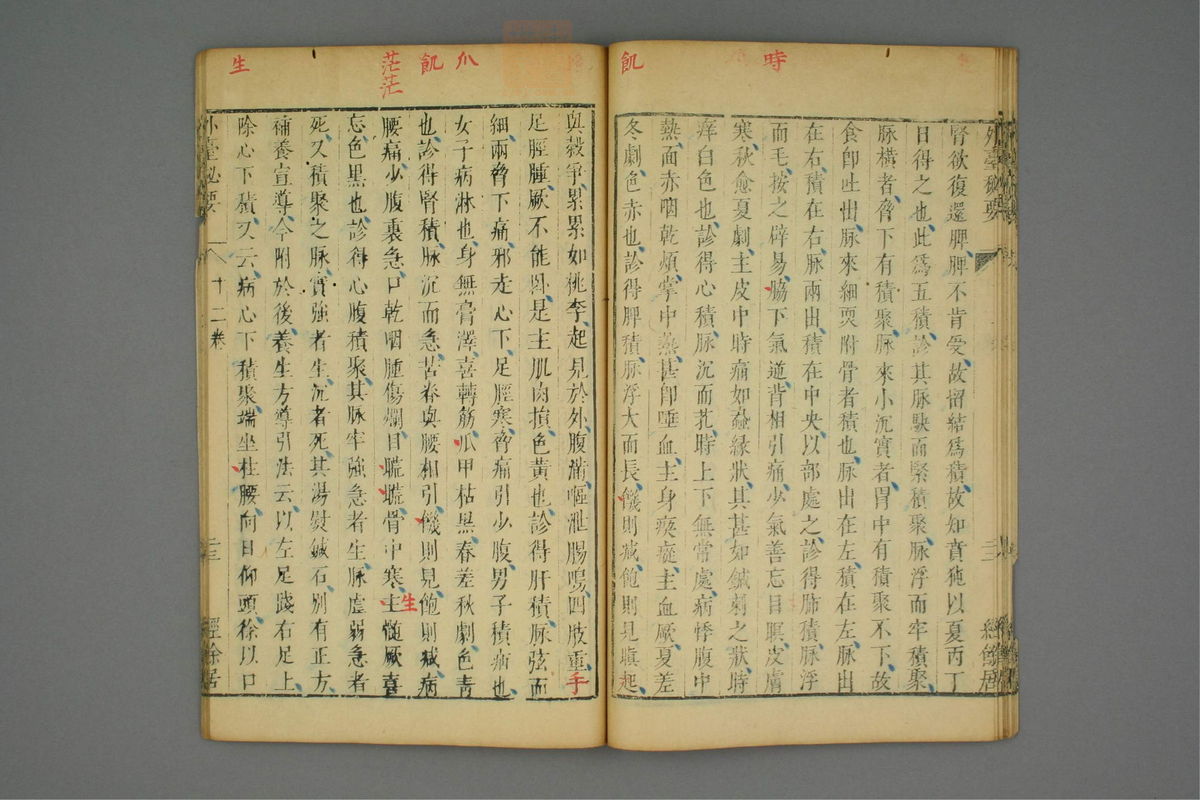 時
飢
外臺秘要
腎欲復還脾脾不肯受故留結爲積故知賁㹠以夏丙丁
日得之也此爲五積診其脉駃而緊積聚脉浮而牢積聚
脉橫者脅下有積聚脉來小沉實者胃中有積聚不下故
食卽吐出脉來細耎附骨者積也脉出在左積在左脉出
在右積在右脉兩出積在中央以部處之診得肺積脉浮
而毛按之辟易脇下氣逆背相引痛少氣善忘目瞑皮膚
寒秋愈夏劇主皮中時痛如蝨緣狀其甚如鍼刺之狀時
痒白色也診得心積脉沉而芤時上下無常處病悸腹中
熱面赤咽乾煩掌中熱甚卽唾血主身瘈瘲主血厥夏差
冬劇色赤也診得脾積脉浮大而長饑則減飽則見䐜起
爪
飢
茫茫
生
與穀爭累累如桃李起見於外腹滿嘔泄腸鳴四肢重手
足脛腫厥不能臥是主肌肉損色黃也診得肝積脉弦而
細兩脅下痛邪走心下足脛寒脅痛引少腹男子積疝也
女子病淋也身無膏澤喜轉筋瓜甲枯黑春差秋劇色青
也診得腎積脉沉而急苦脊與腰相引饑則見飽則減病
腰痛少腹裏急口乾咽腫傷爛目䀮䀮骨中寒主髓厥喜
生
忘色黑也診得心腹積聚其脉牢強急者生脉虛弱急者
死又積聚之脉實強者生沉者死其湯熨鍼石別有正方
補養宣導今附於後養生方導引法云以左足踐右足上
除心下積又云病心下積聚端坐柱腰向日仰頭徐以口
外臺秘要
十二卷
二三
經餘居